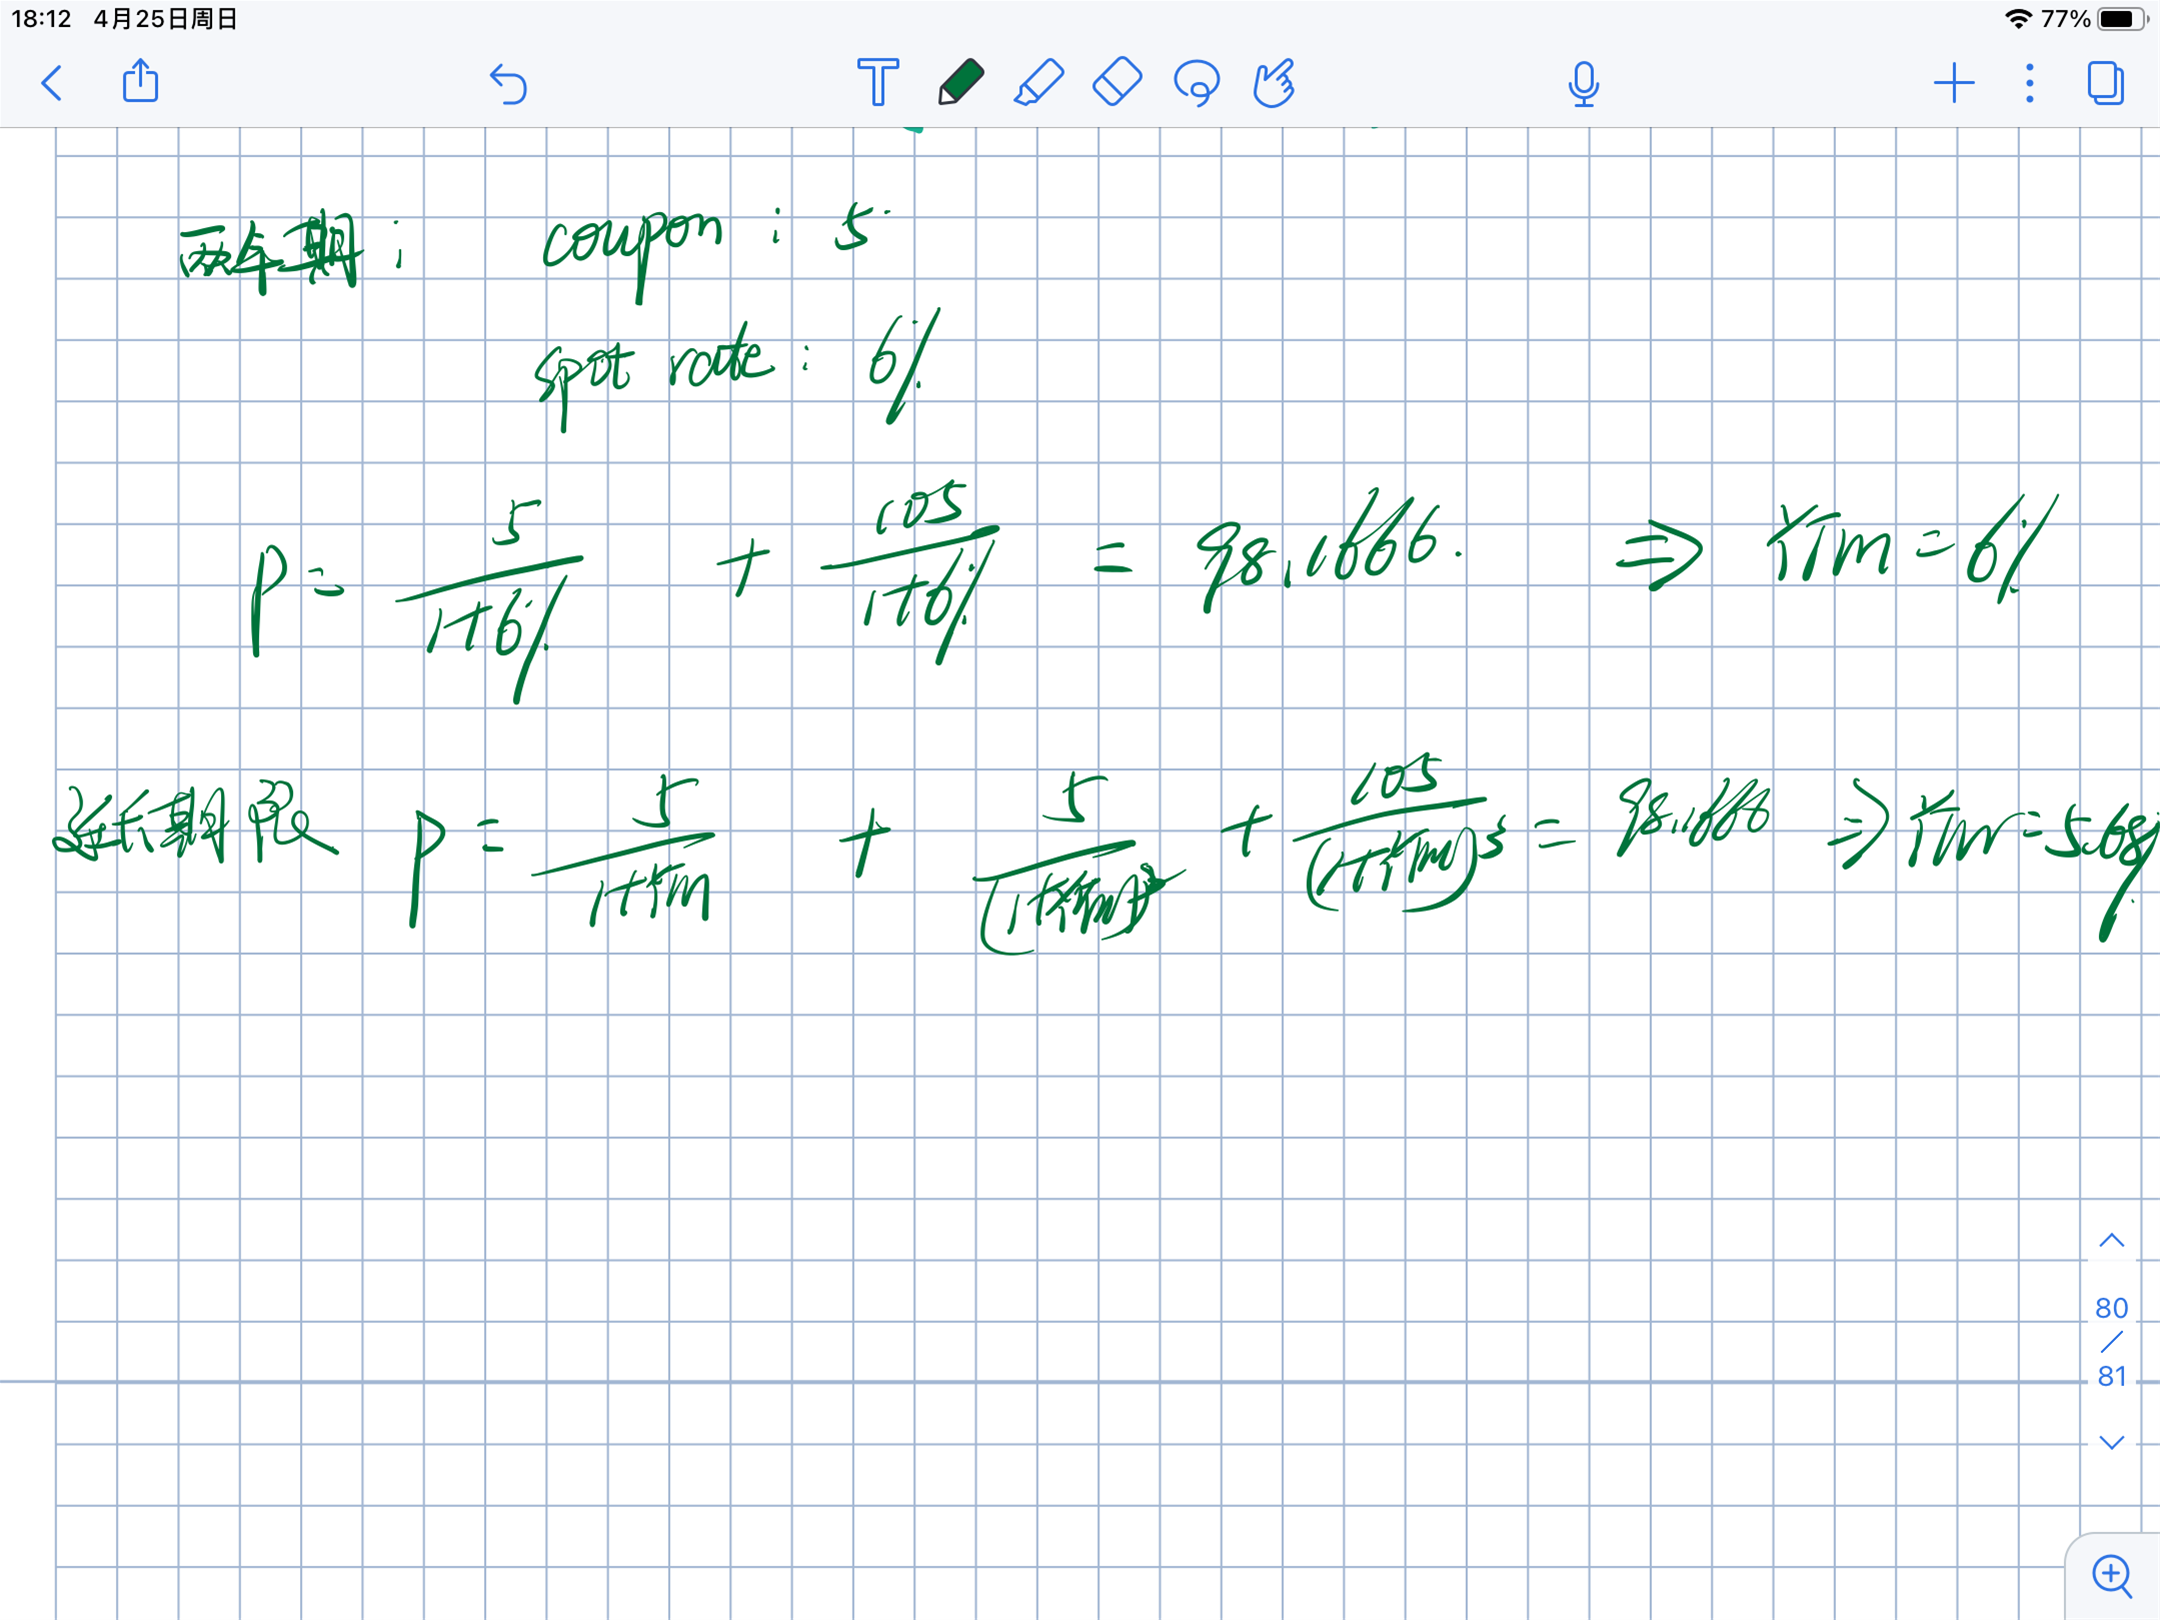 18:12 4月25日周日 77%
两年期: coupon: 5
spot rate: 6%
P = 5/(1+6%) + 105/(1+6%) = 98.1666. ⇒ YTM = 6%
延长期限 P = 5/(1+YTM) + 5/(1+YTM)² + 105/(1+YTM)³ = 98.1666 ⇒ YTM = 5.68%
80
/
81